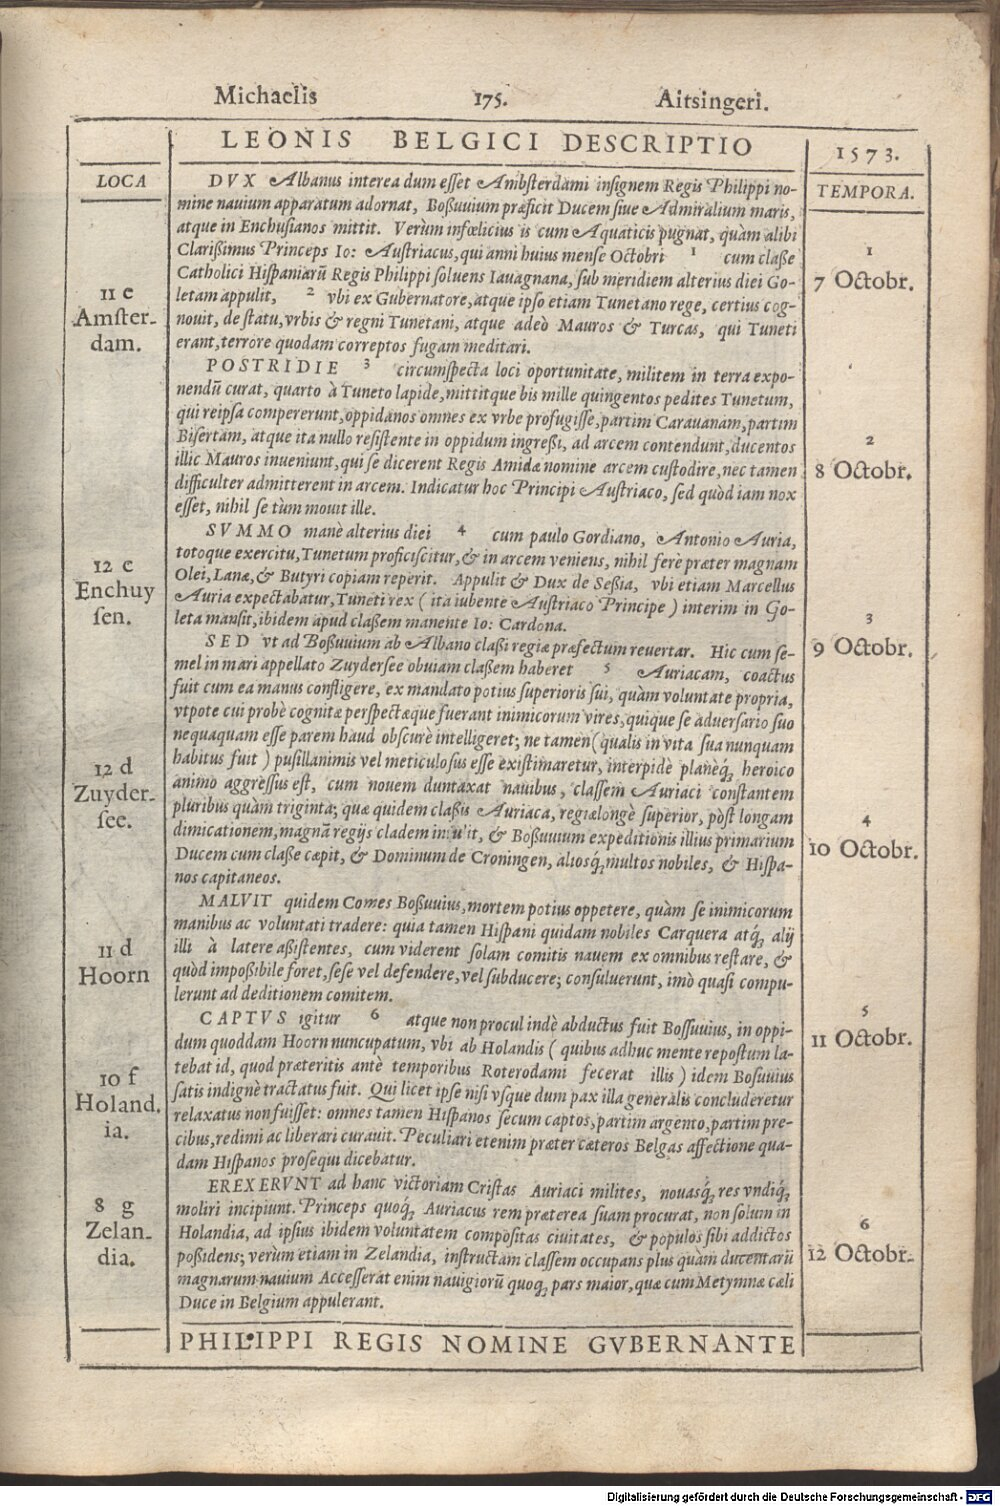 Michaelis 175. Aitsingeri.
LEONIS BELGICI DESCRIPTIO
1573.
LOCA
TEMPORA.
DVX Albanus interea dum esset Ambsterdami insignem Regis Philippi no-
mine nauium apparatum adornat, Boßuuium præficit Ducem siue Admiralium maris,
atque in Enchusianos mittit. Verùm infœlicius is cum Aquaticis pugnat, quàm alibi
Clarißimus Princeps Io: Austriacus, qui anni huius mense Octobri 1 cum claße
Catholici Hispaniarũ Regis Philippi soluens Iauagnana, sub meridiem alterius diei Go-
letam appulit, 2 vbi ex Gubernatore, atque ipso etiam Tunetano rege, certius cog-
nouit, de statu, vrbis & regni Tunetani, atque adeò Mauros & Turcas, qui Tuneti
erant, terrore quodam correptos fugam meditari.
POSTRIDIE 3 circumspecta loci oportunitate, militem in terra expo-
nendũ curat, quarto à Tuneto lapide, mittitque bis mille quingentos pedites Tunetum,
qui reipsa compererunt, oppidanos omnes ex vrbe profugisse, partim Carauanam, partim
Bisertam, atque ita nullo resistente in oppidum ingreßi, ad arcem contendunt, ducentos
illic Mauros inueniunt, qui se dicerent Regis Amidæ nomine arcem custodire, nec tamen
difficulter admitterent in arcem. Indicatur hoc Principi Austriaco, sed quòd iam nox
esset, nihil se tùm mouit ille.
SVMMO manè alterius diei 4 cum paulo Gordiano, Antonio Auria,
totoque exercitu, Tunetum proficiscitur, & in arcem veniens, nihil ferè præter magnam
Olei, Lanæ, & Butyri copiam reperit. Appulit & Dux de Seßia, vbi etiam Marcellus
Auria expectabatur, Tuneti rex ( ita iubente Austriaco Principe ) interim in Go-
leta mansit, ibidem apud claßem manente Io: Cardona.
SED vt ad Boßuuium ab Albano claßi regiæ præfectum reuertar. Hic cum se-
mel in mari appellato Zuydersee obuiam claßem haberet 5 Auriacam, coactus
fuit cum ea manus confligere, ex mandato potius superioris sui, quàm voluntate propria,
vtpote cui probè cognitæ perspectæque fuerant inimicorum vires, quique se aduersario suo
nequaquam esse parem haud obscurè intelligeret; ne tamen ( qualis in vita sua nunquam
habitus fuit ) pusillanimis vel meticulosus esse existimaretur, interpidè planèq́ꝫ heroico
animo aggressus est, cum nouem duntaxat nauibus, classem Auriaci constantem
pluribus quàm triginta; quæ quidem claßis Auriaca, regiæ longè superior, pòst longam
dimicationem, magnã regijs cladem intulit, & Boßuuium expeditionis illius primarium
Ducem cum claße cæpit, & Dominum de Croningen, aliosq́ꝫ multos nobiles, & Hispa-
nos capitaneos.
MALVIT quidem Comes Boßuuius, mortem potius oppetere, quàm se inimicorum
manibus ac voluntati tradere: quia tamen Hispani quidam nobiles Carquera atq́ꝫ alij
illi à latere aßistentes, cum viderent solam comitis nauem ex omnibus restare, &
quòd impoßibile foret, sese vel defendere, vel subducere; consuluerunt, imò quasi compu-
lerunt ad deditionem comitem.
CAPTVS igitur 6 atque non procul indè abductus fuit Bossuuius, in oppi-
dum quoddam Hoorn nuncupatum, vbi ab Holandis ( quibus adhuc mente repostum la-
tebat id, quod præteritis antè temporibus Roterodami fecerat illis ) idem Bosuuius
satis indignè tractatus fuit. Qui licet ipse nisi vsque dum pax illa generalis concluderetur
relaxatus non fuisset: omnes tamen Hispanos secum captos, partim argento, partim pre-
cibus, redimi ac liberari curauit. Peculiari etenim præter cæteros Belgas affectione qua-
dam Hispanos prosequi dicebatur.
EREXERVNT ad hanc victoriam Cristas Auriaci milites, nouasq́ꝫ res vndiq́ꝫ
moliri incipiunt. Princeps quoq́ꝫ Auriacus rem præterea suam procurat, non solum in
Holandia, ad ipsius ibidem voluntatem compositas ciuitates, & populos sibi addictos
poßidens; verùm etiam in Zelandia, instructam classem occupans plus quàm ducentarũ
magnarum nauium Accesserat enim nauigiorũ quoqꝫ pars maior, quæ cum Metymnæ cæli
Duce in Belgium appulerant.
PHILIPPI REGIS NOMINE GVBERNANTE
11 e
Amster-
dam.
12 e
Enchuy
sen.
12 d
Zuyder-
see.
11 d
Hoorn
10 f
Holand.
ia.
8 g
Zelan-
dia.
1
7 Octobr.
2
8 Octobr.
3
9 Octobr.
4
10 Octobr.
5
11 Octobr.
6
12 Octobr.
Digitalisierung gefördert durch die Deutsche Forschungsgemeinschaft - DFG